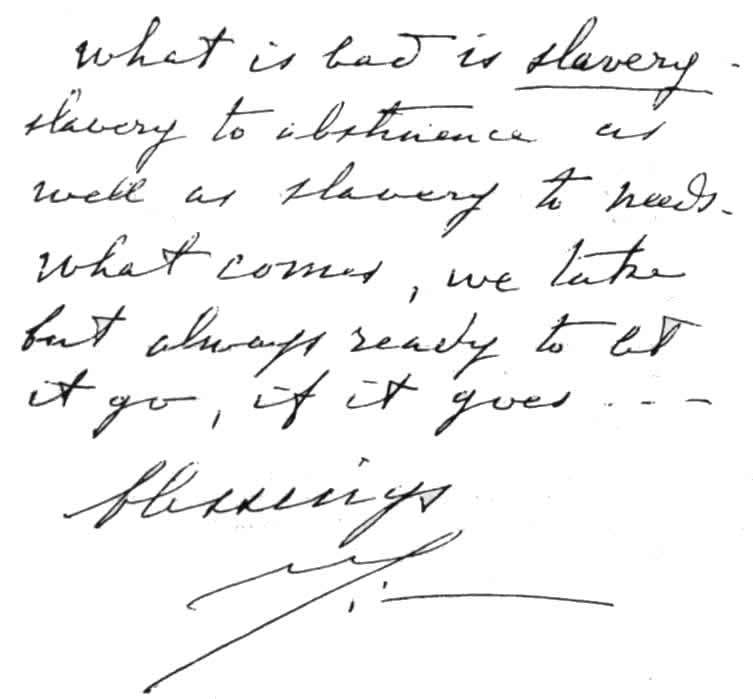 what is bad is slavery -
slavery to abstinence as
well as slavery to needs.
what comes, we take
but always ready to let
it go, if it goes - - -
blessings